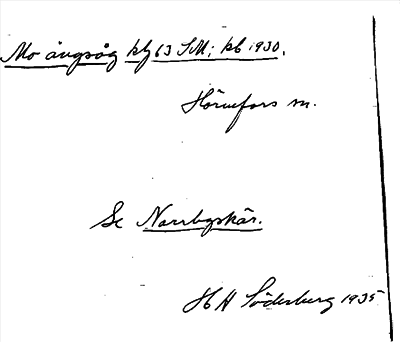 Mo ångsåg kbg 63 SM; kb 1930.
Hörnefors sn.
Se Norrbyskär.
H A Söderberg 1935